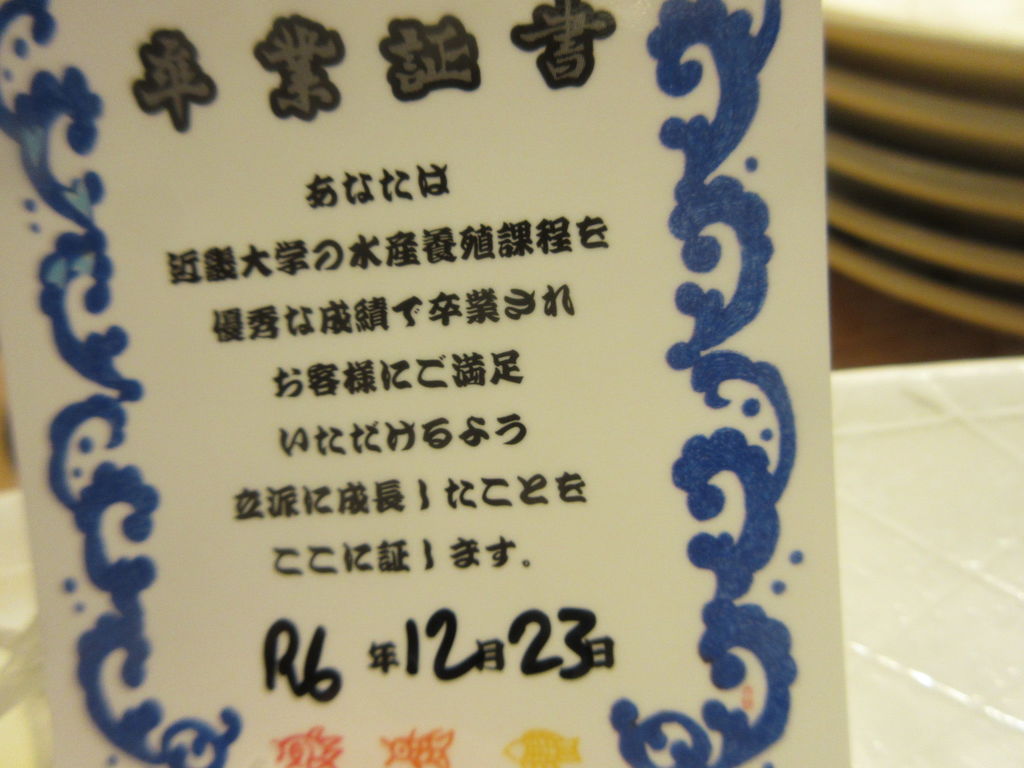 卒業証書
あなたは
近畿大学の水産養殖課程を
優秀な成績で卒業され
お客様にご満足
いただけるよう
立派に成長したことを
ここに証します。
R6年12月23日